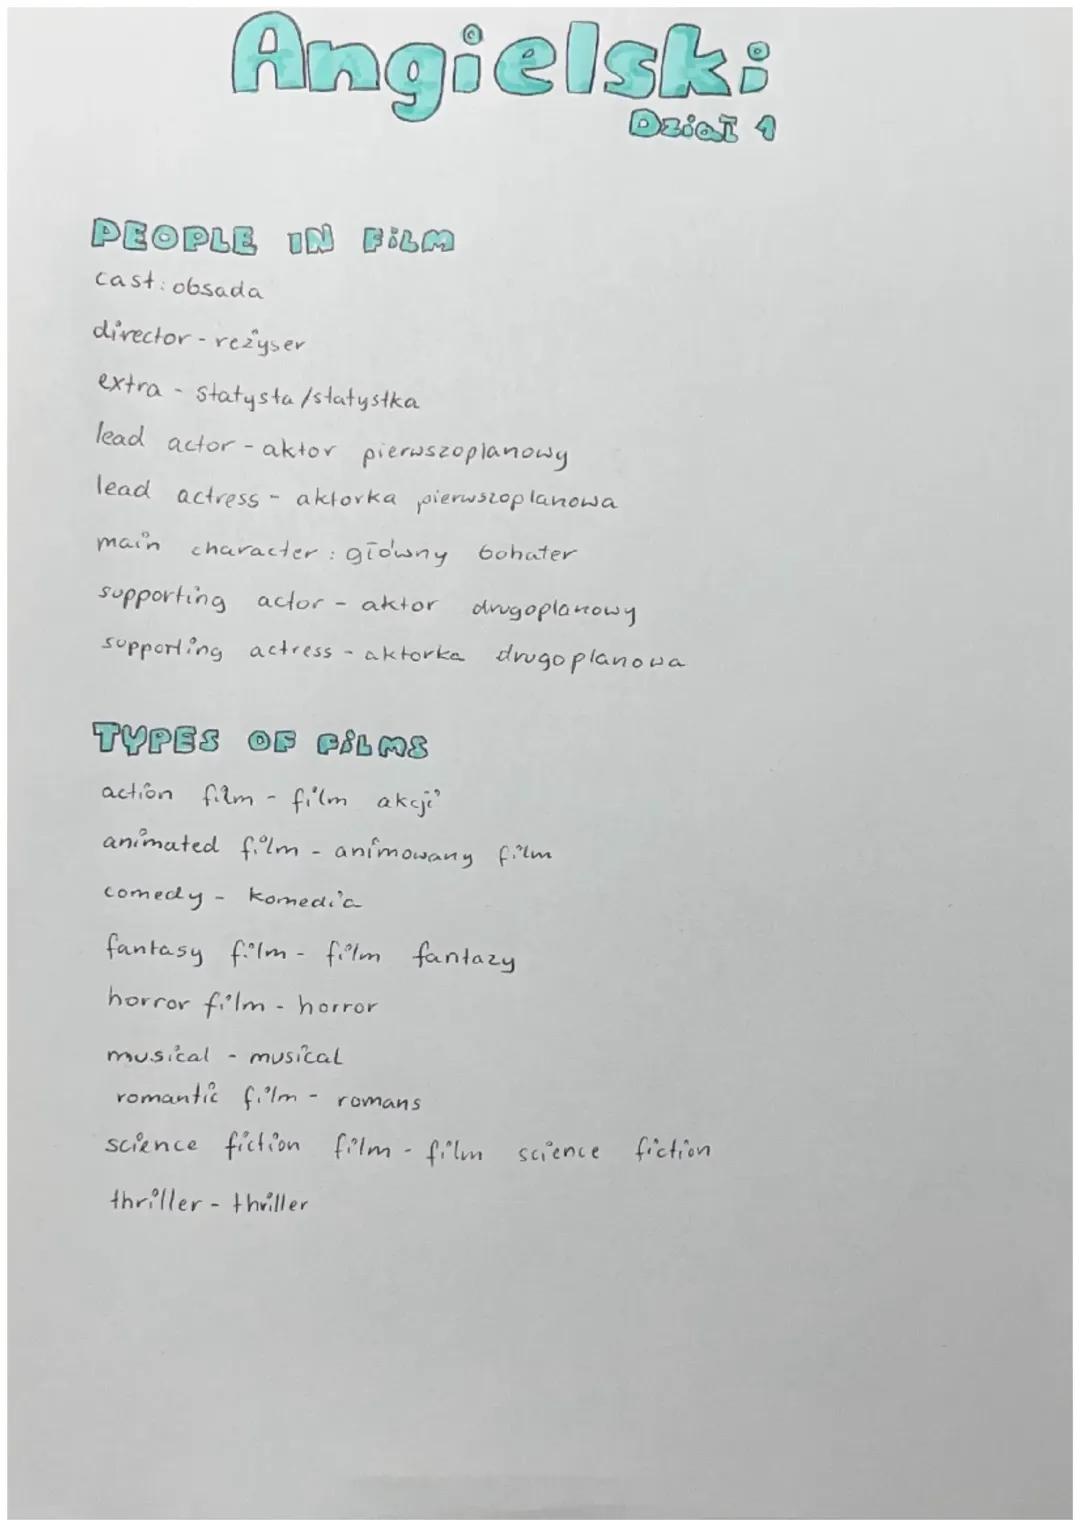 Angielski
Dział 1
PEOPLE IN FILM
cast: obsada
director - reżyser
extra - statysta/statystka
lead actor - aktor pierwszoplanowy
lead actress - aktorka pierwszoplanowa
main character: główny bohater
supporting actor - aktor drugoplanowy
supporting actress - aktorka drugoplanowa
TYPES OF FILMS
action film - film akcji
animated film - animowany film
comedy - komedia
fantasy film - film fantazy
horror film - horror
musical - musical
romantic film - romans
science fiction film - film science fiction
thriller - thriller